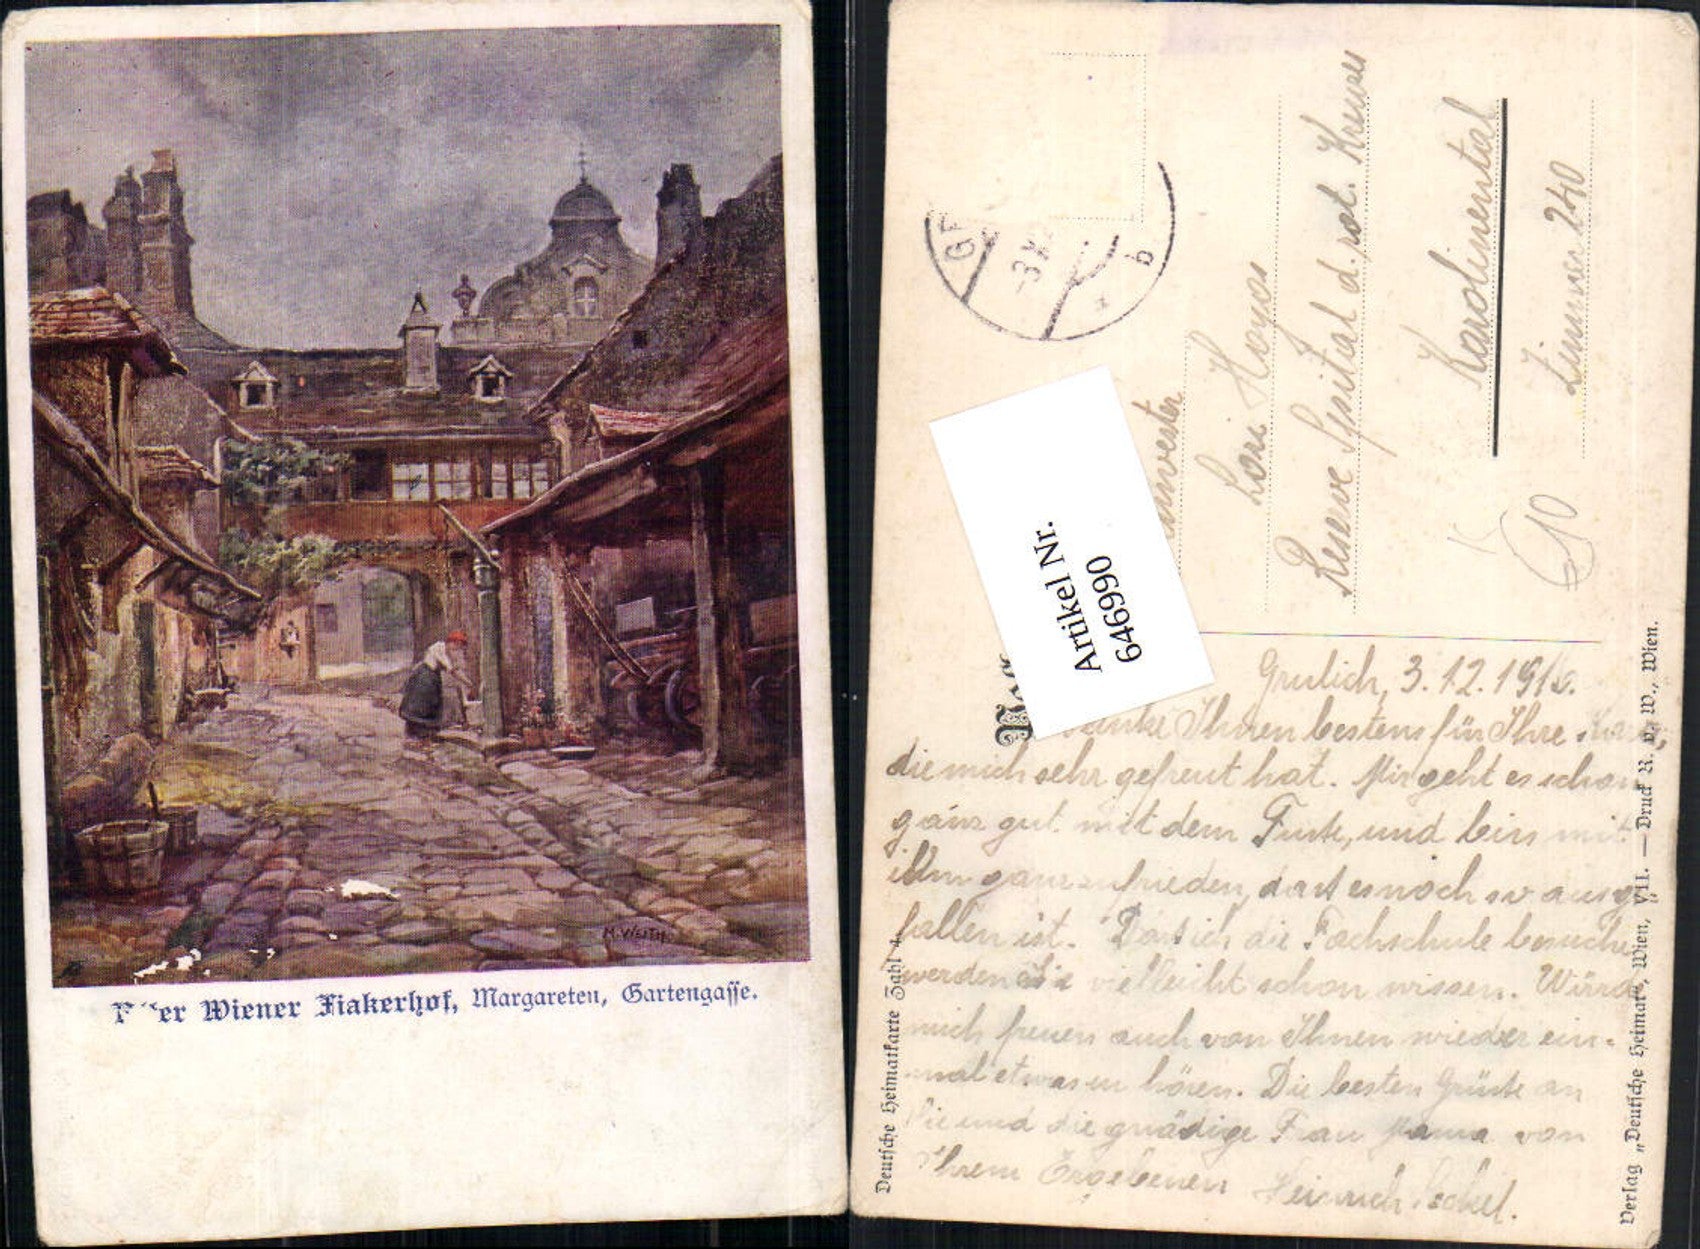 M. WEITH
Wiener Fiakerhof, Margareten, Gartengasse.
Artikel Nr.
646990
-3.X
b
Lois Hoyos
Reserve Spital d. rot. Kreuzes
Karolinental
Zimmer 240
610
Grulich, 3. 12. 1916.
danke Ihnen bestens für Ihre
die mich sehr gefreut hat. Mir geht es schon
ganz gut mit dem Fuße, und bin mit
ihm ganz zufrieden, daß es noch so ausge
fallen ist. Daß ich die Fachschule besuche
werden Sie vielleicht schon wissen. Würde
mich freuen auch von Ihnen wieder ein-
mal etwas zu hören. Die besten Grüße an
Sie und die gnädige Frau Mama von
Ihrem Ergebenen Heinrich
Deutsche Heimatkarte Zahl 4.
Verlag „Deutsche Heimat“, Wien, VII. — Druck R. v. W., Wien.